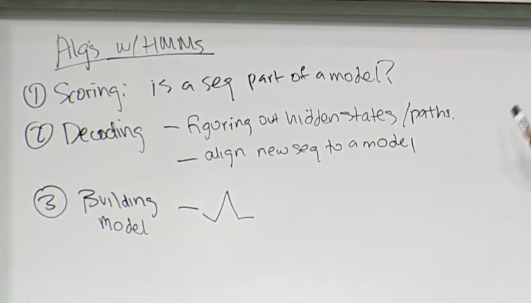 Alg's w/HMMs
① Scoring: is a seq part of a model?
② Decoding – figuring out hidden states/paths.
– align new seq to a model
③ Building –
model